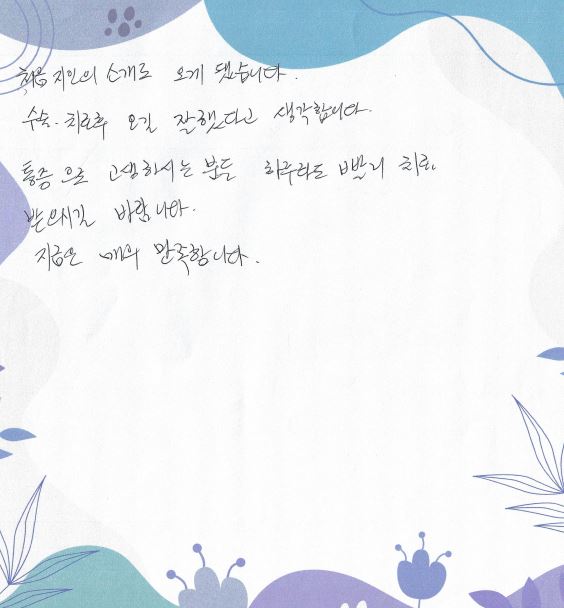 처음 지인의 소개로 오게 됐습니다.
수술. 치료후 오길 잘했다고 생각합니다.
통증 으로 고생하시는 분들 하루라도 빨리 치료
받으시길 바랍니다.
지금은 매우 만족합니다.